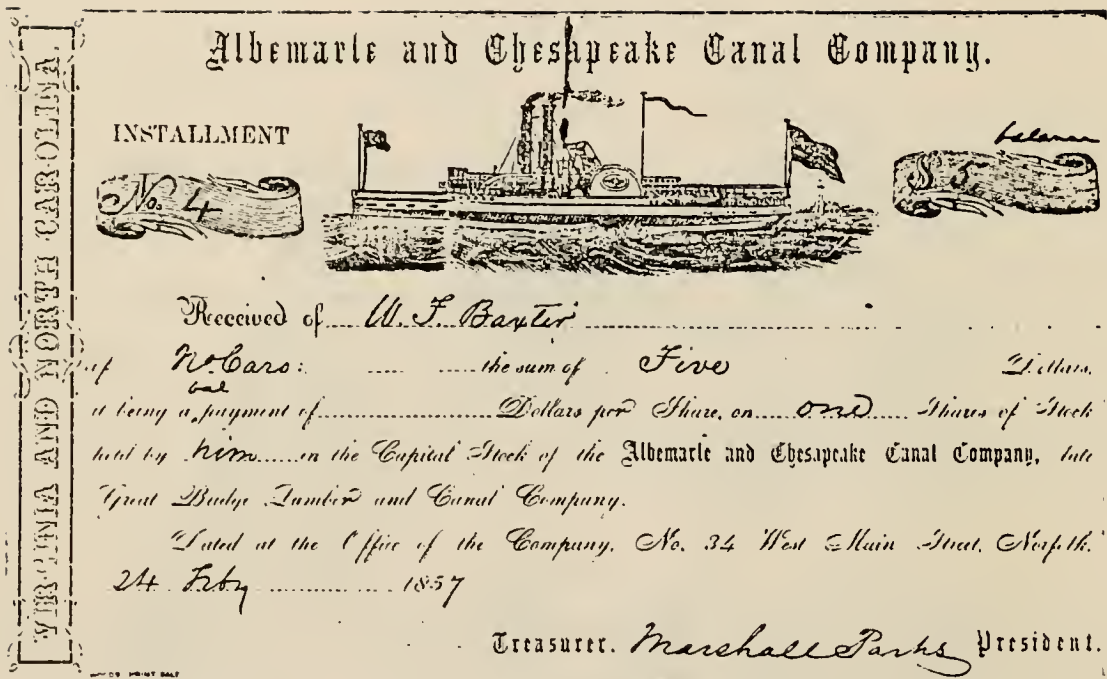 VIRGINIA AND NORTH CAROLINA.
Albemarle and Chesapeake Canal Company.
INSTALLMENT
balance
No. 4
$ 5.
Received of W. F. Baxter
of No Caro: the sum of Five Dollars,
bal
it being a payment of Dollars per Share, on one Shares of Stock
held by him in the Capital Stock of the Albemarle and Chesapeake Canal Company, late
Great Bridge Lumber and Canal Company.
Dated at the Office of the Company, No. 34 West Main Street, Norfolk.
24 Feby 1857
Treasurer. Marshall Parks President.